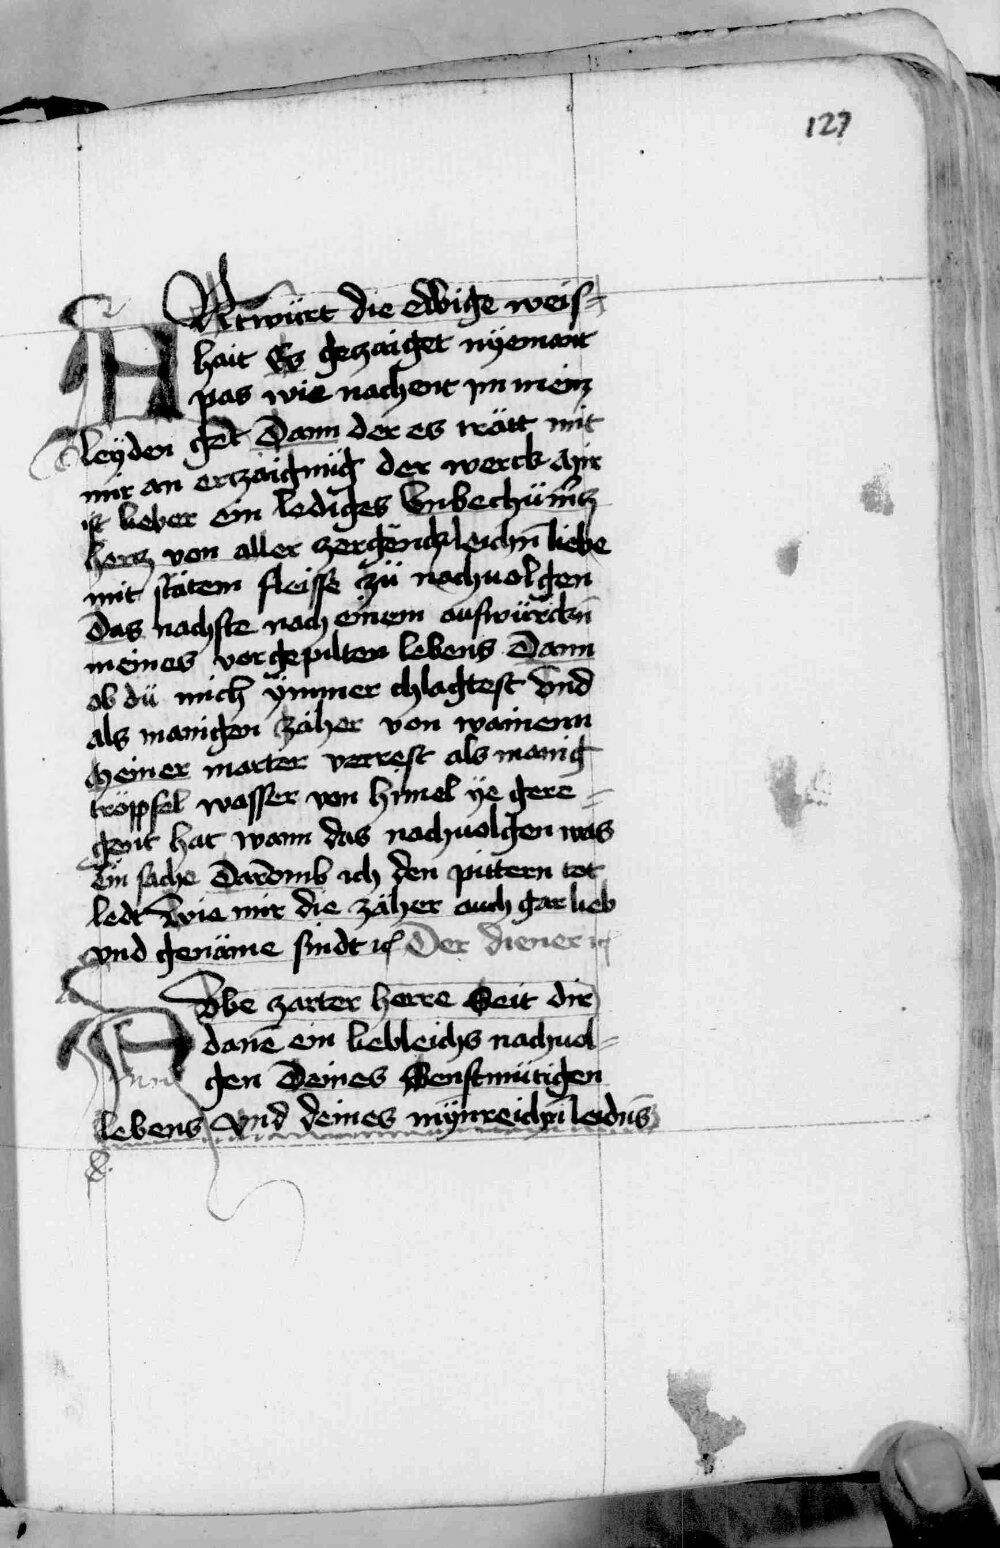 127
ANtwürt die ewige weis-
hait Es geczaiget nyemant
pas wie nachent ym mein
leyden get Dann der es trätt mit
mir an erczaignüg der werck Mir
ist lieber ein lediges vnbechümercz
hercz von aller zergencklichn̄ liebe
mit stätem fleisse zü nachuolgen
Das nachste nach einem auswürckn̄
meines vorgepilten lebens Dann
ob dü mich ymmer chlagtest vnd
als manigen zäher von wainenn
meiner marter verrest als manig
tröppfel wasser von himel ye gere-
gent hat wann das nachuolgen was
ein sache Darōmb ich den pittern tot
ledt Wie mir die zäher auch gar lieb
vnd genäme sindt ꝛc̄ Der diener ꝛc̄
Awe zarter herre Seit dir
dane ein liebleichs nachuol-
gen Deines Senftmütigen
lebens Vnd deines mynreichn̄ leidns